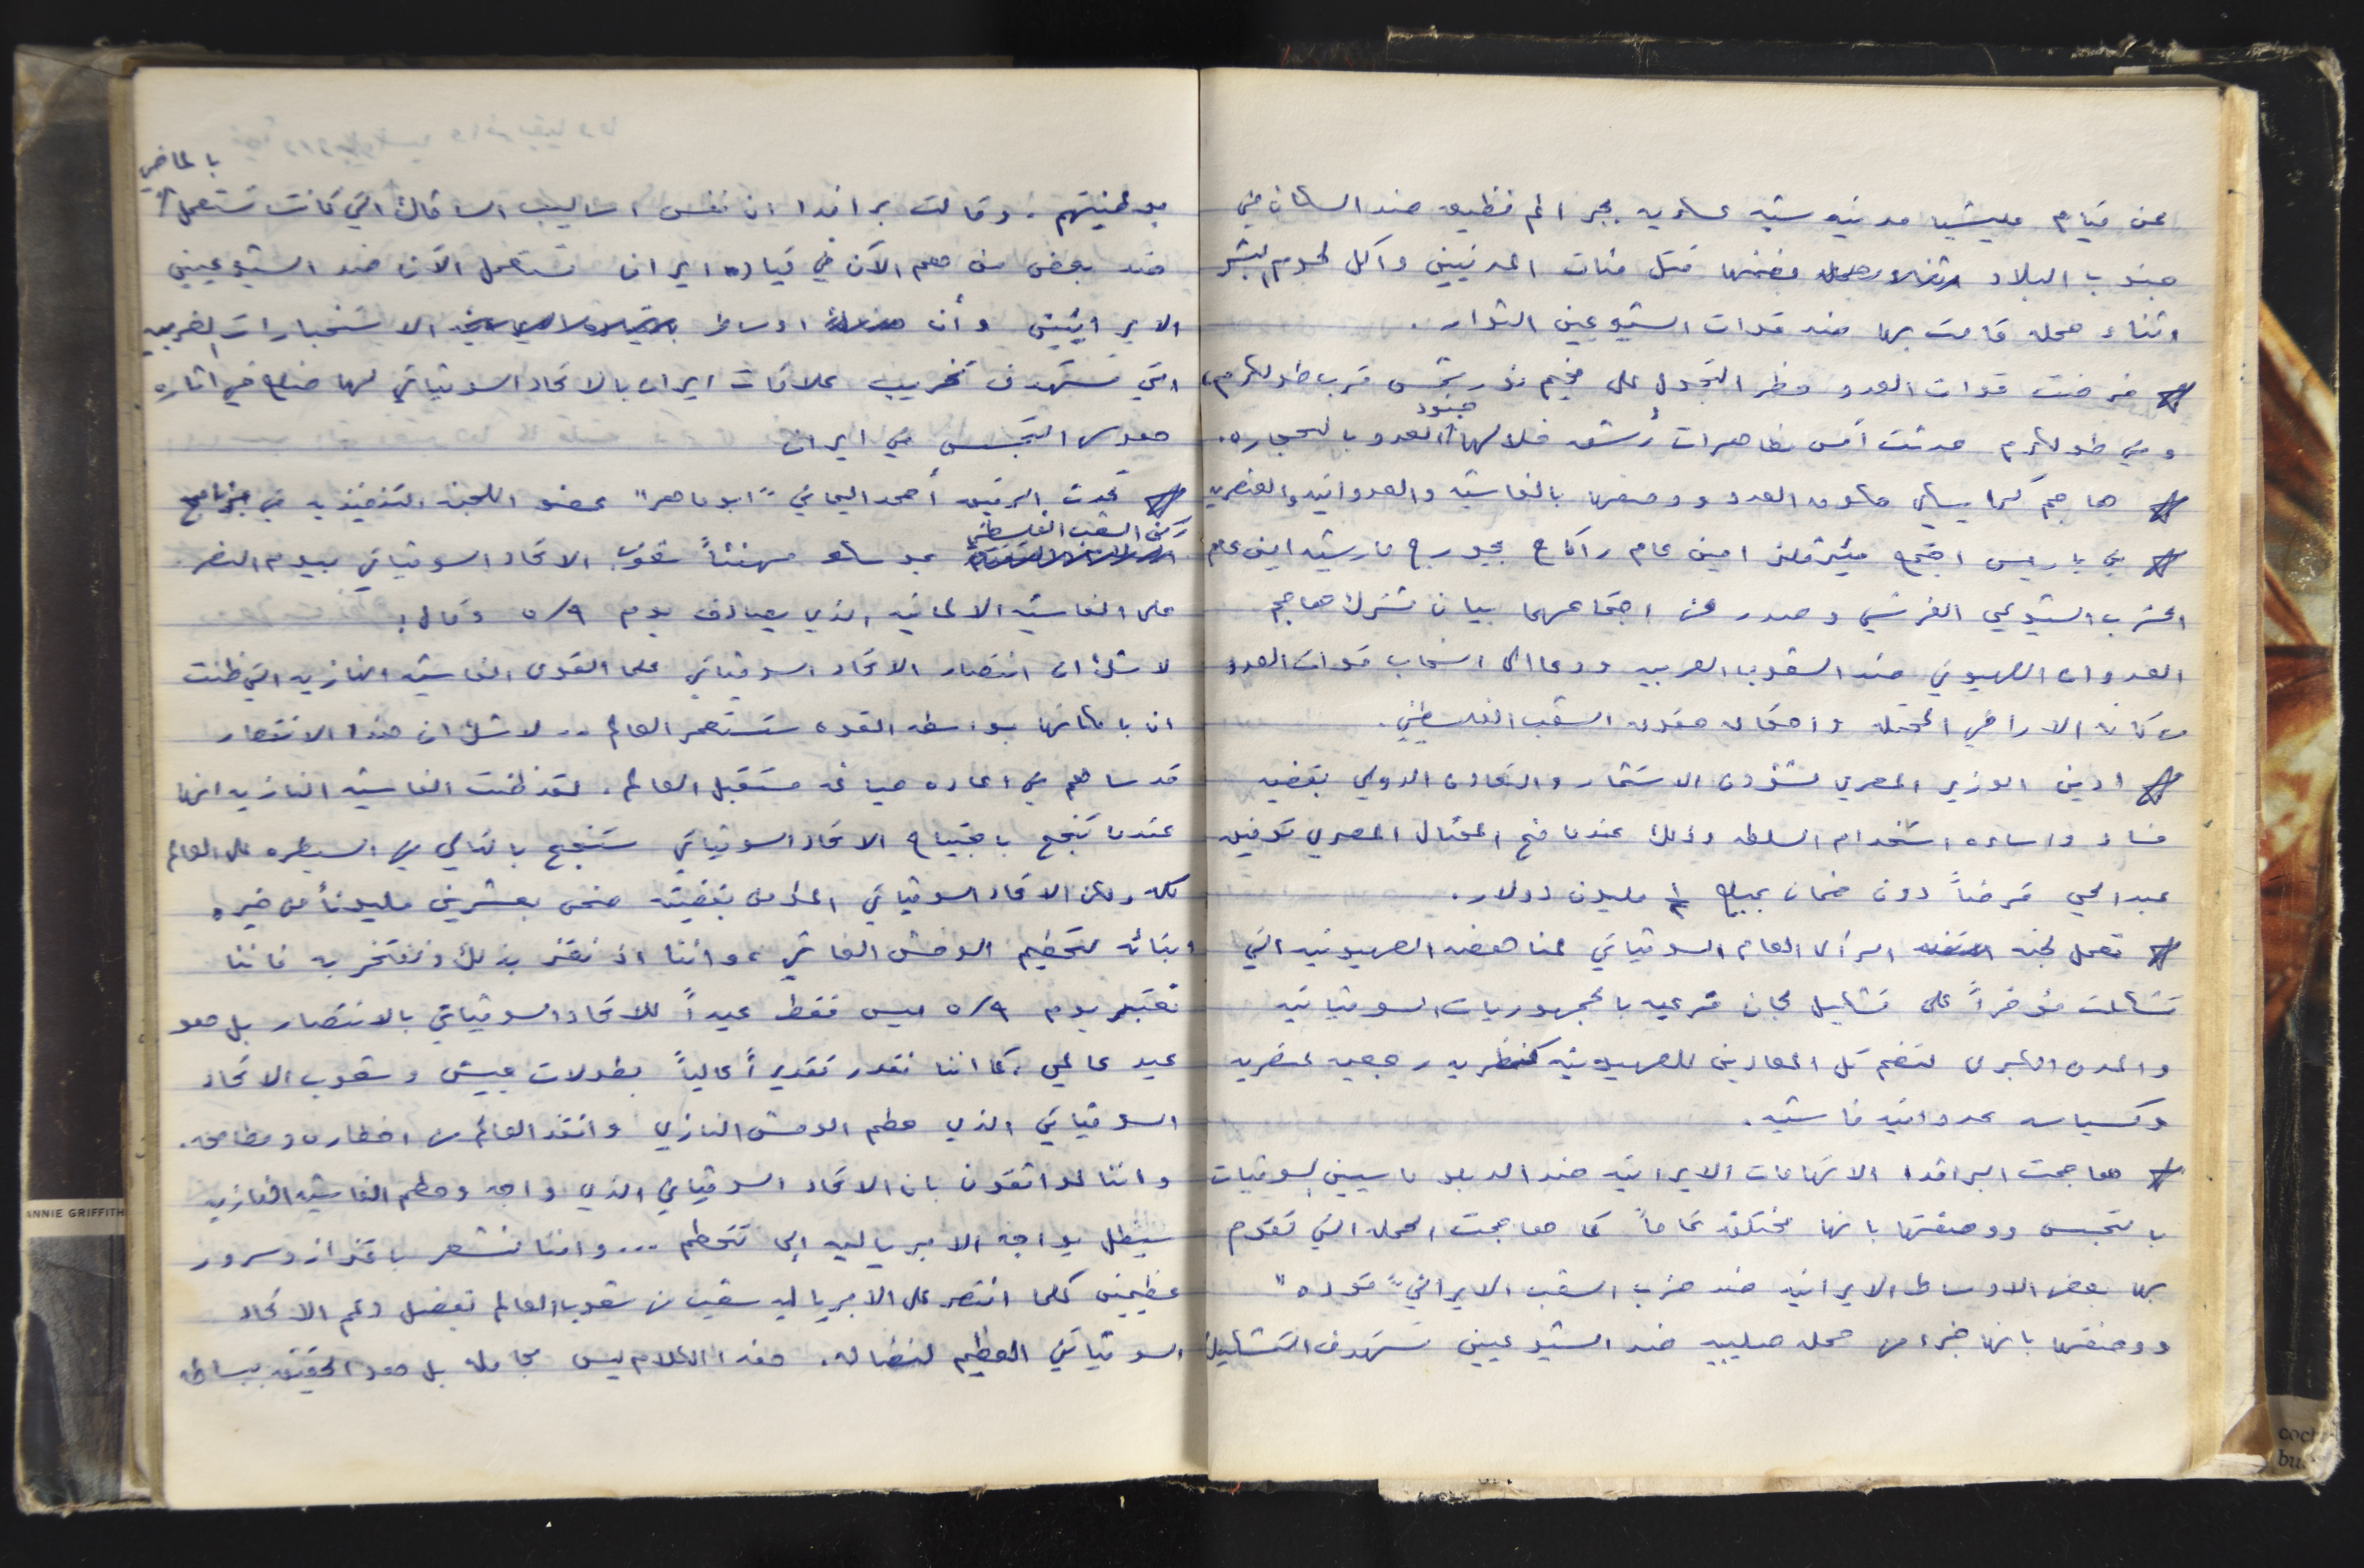 عن قيام مليشيا مدنيه شبه عسكريه بجرائم فظيعه ضد السكان في
جنوب البلاد بضمنها قتل مئات المدنيين واكل لحوم البشر
اثناء حمله قامت بها ضد قوات الشيوعيين الثوار.
* فرضت قوات العدو حظر التجول على مخيم نور شمس قرب طولكرم،
وفي طولكرم حدثت أمس مظاهرات رُشق خلالها جنود العدو بالحجاره.
* هاجم كرايسكي العدو ووصفها بالفاشيه والعدوانيه والعنصريه
* في باريس اجتمع مئير فلنر امين عام راكاح بجورج مارشيه امين عام
الحزب الشيوعي الفرنسي وصدر عن اجتماعهما بيان مشترك هاجم
العدوان الصهيوني ضد الشعوب العربيه ودعا الى انسحاب قوات العدو
من كافه الاراضي المحتله واحقاق حقوق الشعب الفلسطيني.
* ادين الوزير المصري لشؤون الاستثمار والتعاون الدولي بقضيه
فساد واساءه استخدام السلطه وذلك عندما منح المحتال المصري توفيق
عبد الحي قرضاً دون ضمان بمبلغ مليون دولار.
* تعمل لجنه الرأي العام السوفياتي لمناهضه الصهيونيه التي
تشكلت مؤخراً على تشكيل لجان فرعيه بالجمهوريات السوفياتيه
والمدن الكبرى لتضم كل المعادين للصهيونيه كنظريه رجعيه عنصريه
وكسياسه عدوانيه فاشيه.
* هاجمت البرافدا الاتهامات الايرانيه ضد الدبلوماسيين السوفيات
بالتجسس ووصفتها بانها مختلقه تماماً كما هاجمت الحمله التي تقوم
بها بعض الاوساط الايرانيه ضد حزب الشعب الايراني "توده"
ووصفتها بانها جزء من حمله صليبيه ضد الشيوعيين تستهدف التشكيك
بوطنيتهم. وقالت برافدا ان نفس اساليب السافاك التي كانت تستعمل بالماضي
ضد بعض من هم الآن في قياده ايران تستعمل الآن ضد الشيوعيين
الايرانيين وأن اوساط الاستخبارات الغربيه
التي تستهدف تخريب علاقات ايران بالاتحاد السوفياتي لها ضلع في اثاره
هوس التجسس في ايران
* تحدث الرفيق أحمد اليماني "ابو ماهر" عضو اللجنه التنفيذيه في برنامج
ركن الشعب الفلسطيني بموسكو مهنئاً شعوب الاتحاد السوفياتي بيوم النصر
على الفاشيه الالمانيه الذي يصادف يوم ٥/٩ وقال:
لا شك ان انتصار الاتحاد السوفياتي على القوى الفاشيه النازيه التي ظنت
ان بامكانها بواسطه القوه ستستعمر العالم .. لا شك ان هذا الانتصار
قد ساهم في اعاده صياغه مستقبل العالم. لقد ظنت الفاشيه النازيه انها
عندما تنجح باجتياح الاتحاد السوفياتي ستنجح بالتالي في السيطره على العالم
كله ولكن الاتحاد السوفياتي المؤمن بقضيته ضحى بعشرين مليوناً من خيره
ابنائه لتحطيم الوحش الفاشي، واننا اذ نعتز بذلك ونفتخر به فاننا
نعتبر يوم ٥/٩ ليس فقط عيداً للاتحاد السوفياتي بالانتصار بل هو
عيد عالمي، كما اننا نقدر تقديراً عالياً بطولات جيش وشعوب الاتحاد
السوفياتي الذي حطم الوحش النازي وانقذ العالم من اخطاره ومطامعه.
واننا لواثقون بان الاتحاد السوفياتي الذي واجه وحطم الفاشيه النازيه
سيظل يواجه الامبرياليه الى تتحطم ... واننا نشعر باعتزاز وسرور
عظيمين كلما انتصر على الامبرياليه شعب من شعوب العالم بفضل دعم الاتحاد
السوفياتي العظيم لنضاله. هذا الكلام ليس مجامله بل هو الحقيقه ببساطه